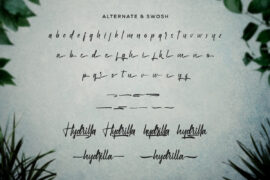 ALTERNATE & SWOSH
a b c d e f g h i j k l m n o p q r s t u v w x y z
a b c d e f g h i j k l m n o
p q r s t u v w x y z
Hydrilla Hydrilla hydrilla hydrilla
hydrilla hydrilla